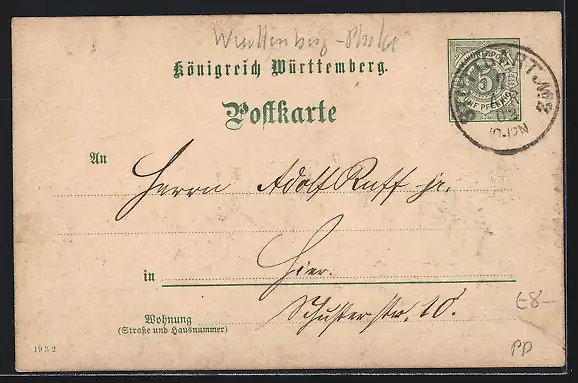 Württemberg - Photo
Königreich Württemberg.
Postkarte
5
FÜNF PFENNIG
STUTTGART No
10-12N
An
Herrn Adolf Ruff jr.
in
Hier.
Wohnung
(Straße und Hausnummer)
Schusterstr. 10.
E8-
PP
1 9 3 2